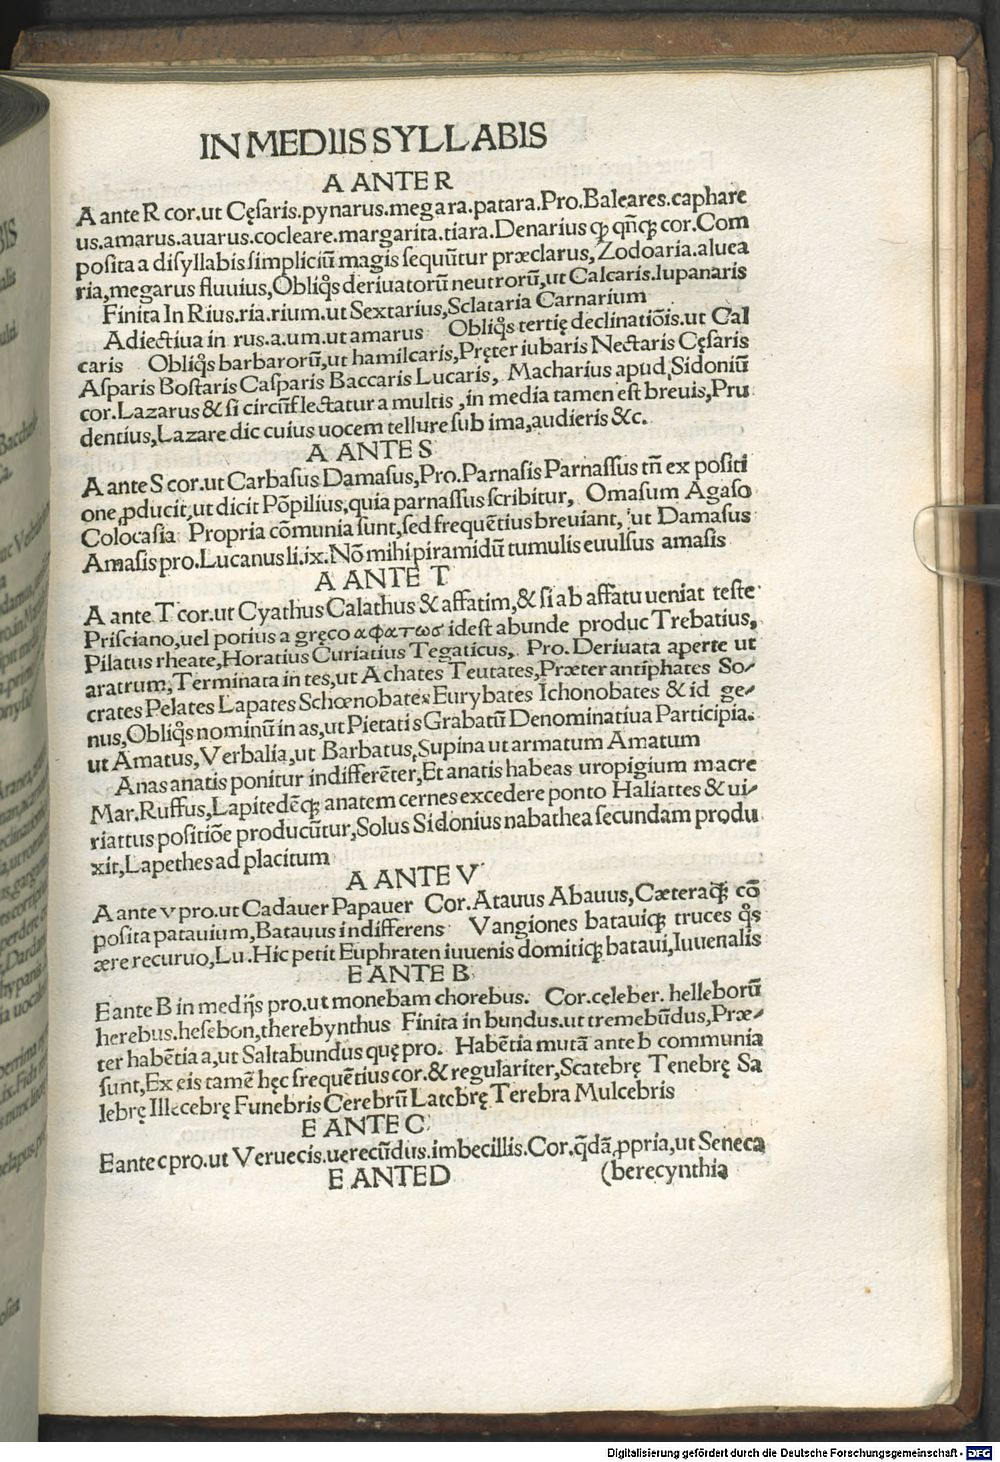 IN MEDIIS SYLLABIS
A ANTE R
A ante R cor.ut Cęſaris.pynarus.megara.patara.Pro.Baleares.caphare
us.amarus.auarus.cocleare.margarita.tiara.Denarius qꝫ qñqꝫ cor.Com
poſita a diſyllabis ſimpliciũ magis ſequũtur præclarus,Zodoaria.aluea
ria,megarus fluuius,Obliq̃s deriuatorũ neutrorũ,ut Calcaris.lupanaris
Finita In Rius.ria.rium.ut Sextarius,Sclataria Carnarium
Adiectiua in rus.a.um.ut amarus Obliq̃s tertię declinatiõis.ut Cal
caris Obliq̃s barbarorũ,ut hamilcaris,Pręter iubaris Nectaris Cęſaris
Aſparis Boſtaris Caſparis Baccaris Lucaris, Macharius apud Sidoniũ
cor.Lazarus & ſi circũflectatur a multis ,in media tamen eſt breuis,Pru
dentius,Lazare dic cuius uocem tellure ſub ima,audieris &c.
A ANTE S
A ante S cor.ut Carbaſus Damaſus,Pro.Parnaſis Parnaſſus tñ ex poſiti
one ꝓducit,ut dicit Põpilius,quia parnaſſus ſcribitur, Omaſum Agaſo
Colocaſia Propria cõmunia ſunt,ſed frequẽtius breuiant, ut Damaſus
Amaſis pro.Lucanus li.ix.Nõ mihi piramidũ tumulis euulſus amaſis
A ANTE T
A ante T cor.ut Cyathus Calathus & affatim,& ſi ab affatu ueniat teſte
Priſciano,uel potius a gręco αφατωσ ideſt abunde produc Trebatius,
Pilatus rheate,Horatius Curiatius Tegaticus, Pro. Deriuata aperte ut
aratrum,Terminata in tes,ut Achates Teutates,Præter antiphates So⸗
crates Pelates Lapates Schœnobates Eurybates Ichonobates & id ge⸗
nus,Obliq̃s nominũ in as,ut Pietatis Grabatũ Denominatiua Participia.
ut Amatus,Verbalia,ut Barbatus,Supina ut armatum Amatum
Anas anatis ponitur indifferẽter,Et anatis habeas uropigium macre
Mar.Ruffus,Lapitedẽqꝫ anatem cernes excedere ponto Haliattes & ui⸗
riattus poſitiõe producũtur,Solus Sidonius nabathea ſecundam produ
xit,Lapethes ad placitum
A ANTE V
A ante v pro.ut Cadauer Papauer Cor.Atauus Abauus,Cæteraqꝫ cõ
poſita patauium,Batauus indifferens Vangiones batauiqꝫ truces q̃s
ære recuruo,Lu.Hic petit Euphraten iuuenis domitiqꝫ bataui,Iuuenalis
E ANTE B
E ante B in medijs pro.ut monebam chorebus. Cor.celeber. helleborũ
herebus.heſebon,therebynthus Finita in bundus.ut tremebũdus,Præ⸗
ter habẽtia a,ut Saltabundus quę pro. Habẽtia mutã ante b communia
ſunt,Ex eis tamẽ hęc frequẽtius cor.& regulariter,Scatebrę Tenebrę Sa
lebrę Illecebrę Funebris Cerebrũ Latebrę Terebra Mulcebris
E ANTE C
E ante c pro.ut Veruecis.uerecũdus.imbecillis.Cor.q̃dã ꝓpria,ut Seneca
E ANTE D (berecynthia
Digitalisierung gefördert durch die Deutsche Forschungsgemeinschaft - DFG